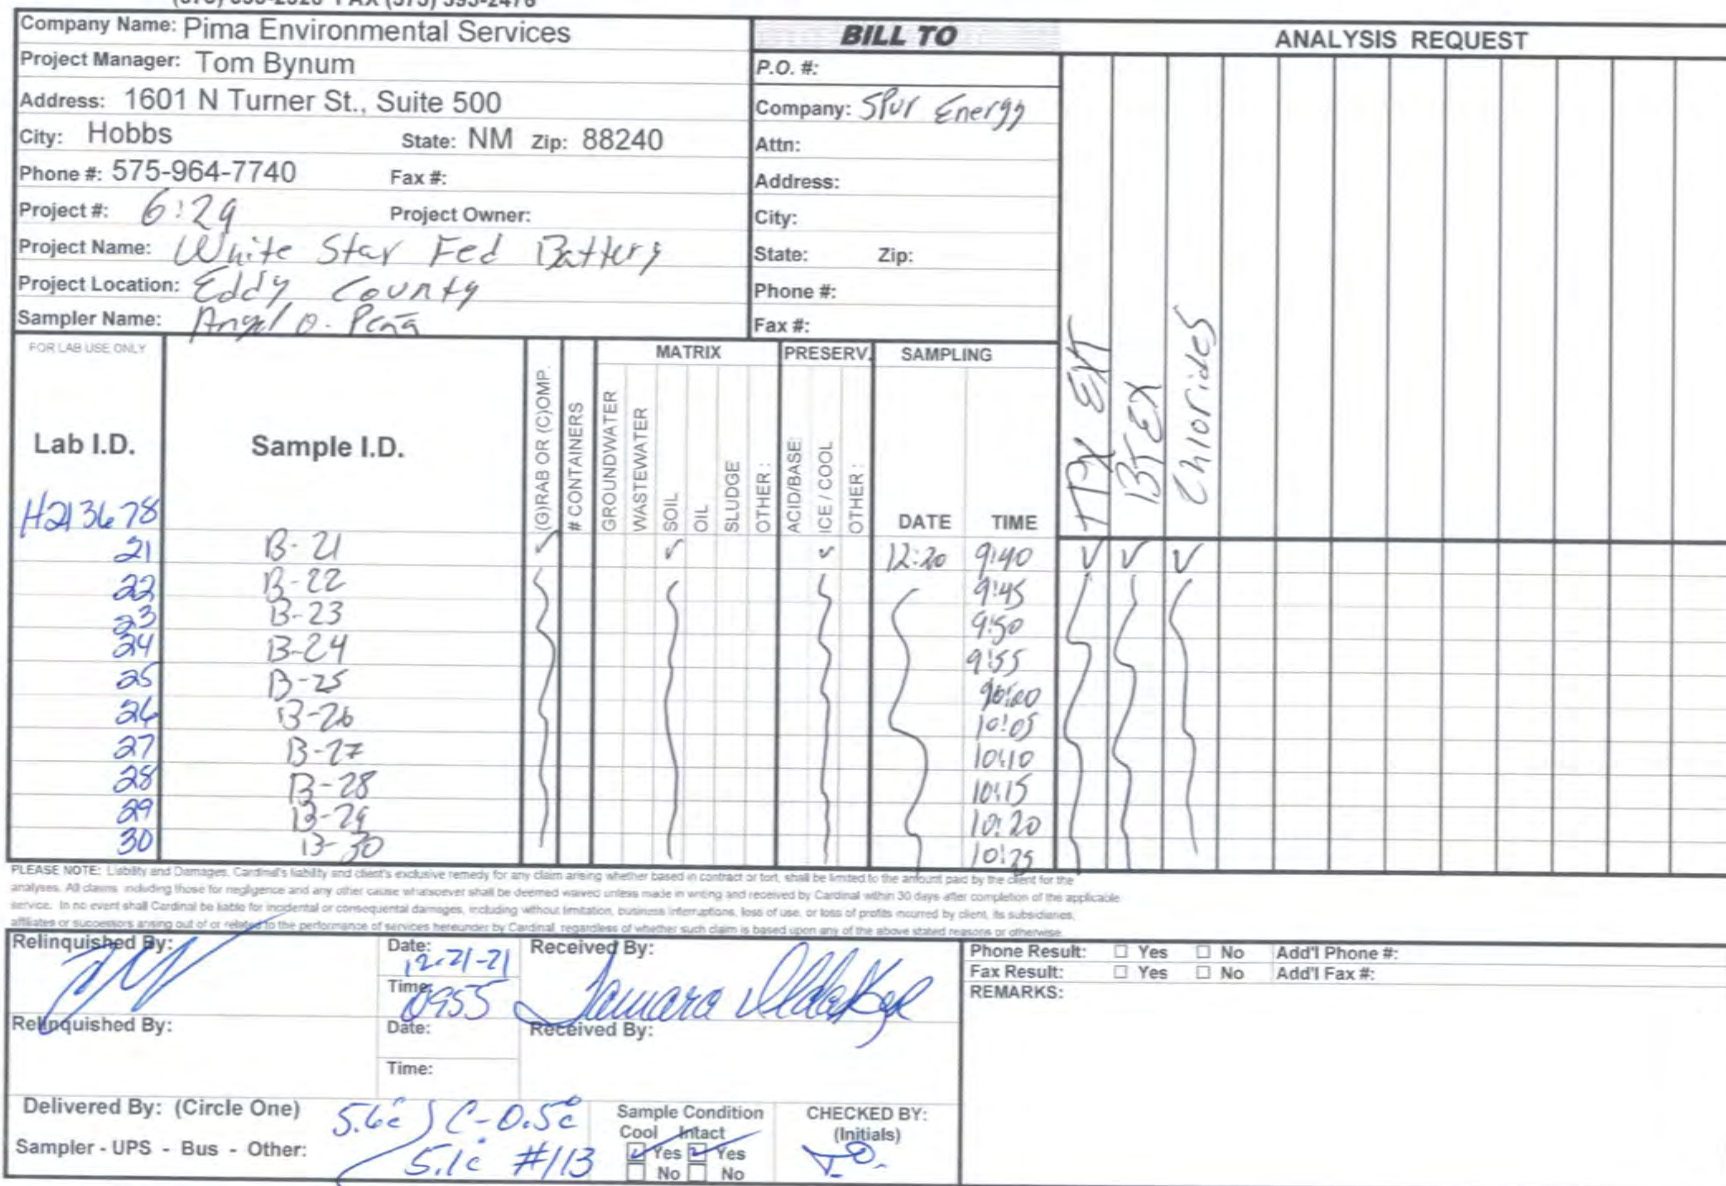 Company Name: Pima Environmental Services
BILL TO
ANALYSIS REQUEST
Project Manager: Tom Bynum
P.O. #:
Address: 1601 N Turner St., Suite 500
Company: Spur Energy
City: Hobbs State: NM Zip: 88240
Attn:
Phone #: 575-964-7740 Fax #:
Address:
Project #: 6:29 Project Owner:
City:
Project Name: White Star Fed Battery
State: Zip:
Project Location: Eddy County
Phone #:
Sampler Name: Angel O. Peña
Fax #:
FOR LAB USE ONLY
Lab I.D.
Sample I.D.
(G)RAB OR (C)OMP.
# CONTAINERS
MATRIX
GROUNDWATER
WASTEWATER
SOIL
OIL
SLUDGE
OTHER :
PRESERV.
ACID/BASE:
ICE / COOL
OTHER :
SAMPLING
DATE TIME
TPX EXT
BTEX
Chlorides
H213678
21 B-21 ✓ ✓ ✓ 12:20 9:40 ✓ ✓ ✓
22 B-22 9:45
23 B-23 9:50
24 B-24 9:55
25 B-25 10:00
26 B-26 10:05
27 B-27 10:10
28 B-28 10:15
29 B-29 10:20
30 B-30 10:25
PLEASE NOTE: Liability and Damages. Cardinal's liability and client's exclusive remedy for any claim arising whether based in contract or tort, shall be limited to the amount paid by the client for the
analyses. All claims including those for negligence and any other cause whatsoever shall be deemed waived unless made in writing and received by Cardinal within 30 days after completion of the applicable
service. In no event shall Cardinal be liable for incidental or consequental damages, including without limitation, business interruptions, loss of use, or loss of profits incurred by client, its subsidiaries,
affiliates or successors arising out of or related to the performance of services hereunder by Cardinal, regardless of whether such claim is based upon any of the above stated reasons or otherwise.
Relinquished By:
Date: 12-21-21
Time: 0955
Received By:
Tamara Oldaker
Phone Result: □ Yes □ No Add'l Phone #:
Fax Result: □ Yes □ No Add'l Fax #:
REMARKS:
Relinquished By:
Date:
Time:
Received By:
Delivered By: (Circle One)
Sampler - UPS - Bus - Other:
5.6c C-0.5c
5.1c #113
Sample Condition
Cool Intact
Yes Yes
No No
CHECKED BY:
(Initials)
T.O.